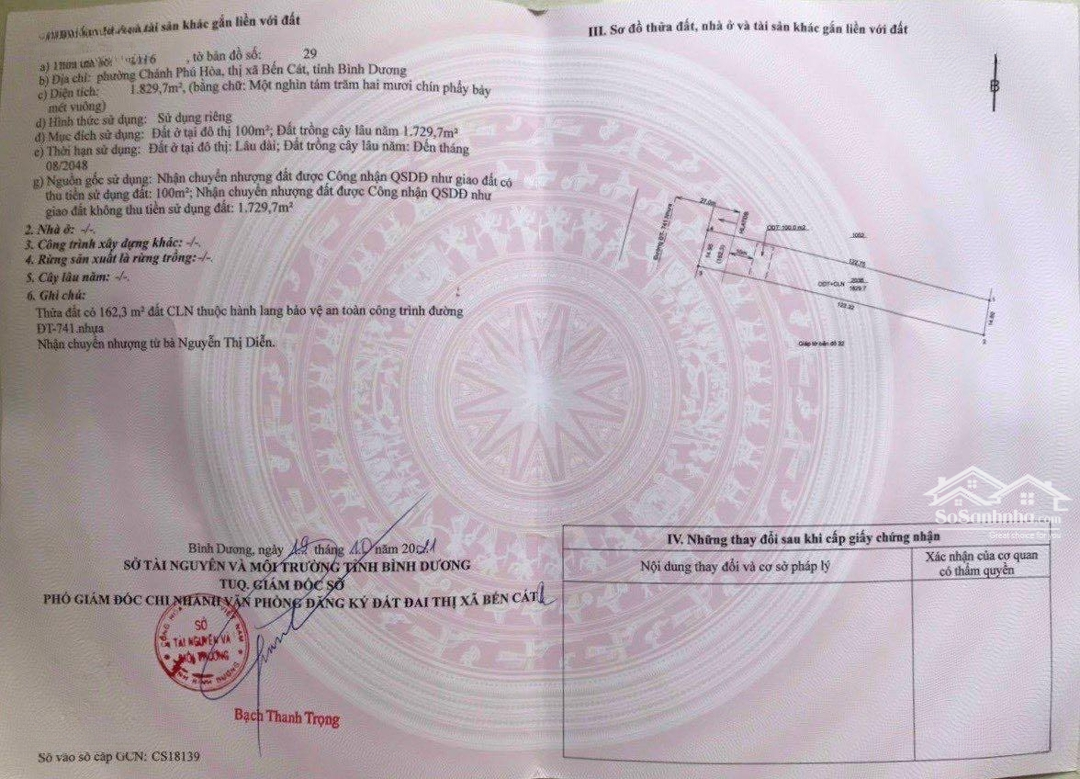 tài sản khác gắn liền với đất
, tờ bản đồ số: 29
b) Địa chỉ: phường Chánh Phú Hòa, thị xã Bến Cát, tỉnh Bình Dương
c) Diện tích: 1.829,7m², (bằng chữ: Một nghìn tám trăm hai mươi chín phẩy bảy
mét vuông)
d) Hình thức sử dụng: Sử dụng riêng
đ) Mục đích sử dụng: Đất ở tại đô thị 100m²; Đất trồng cây lâu năm 1.729,7m²
e) Thời hạn sử dụng: Đất ở tại đô thị: Lâu dài; Đất trồng cây lâu năm: Đến tháng
08/2048
g) Nguồn gốc sử dụng: Nhận chuyển nhượng đất được Công nhận QSDĐ như giao đất có
thu tiền sử dụng đất: 100m²; Nhận chuyển nhượng đất được Công nhận QSDĐ như
giao đất không thu tiền sử dụng đất: 1.729,7m²
2. Nhà ở: -/-.
3. Công trình xây dựng khác: -/-.
4. Rừng sản xuất là rừng trồng:-/-.
5. Cây lâu năm: -/-.
6. Ghi chú:
Thửa đất có 162,3 m² đất CLN thuộc hành lang bảo vệ an toàn công trình đường
ĐT-741.nhựa
Nhận chuyển nhượng từ bà Nguyễn Thị Diễn.
Bình Dương, ngày tháng 10 năm 2021
SỞ TÀI NGUYÊN VÀ MÔI TRƯỜNG TỈNH BÌNH DƯƠNG
TUQ. GIÁM ĐỐC SỞ
PHÓ GIÁM ĐỐC CHI NHÁNH VĂN PHÒNG ĐĂNG KÝ ĐẤT ĐAI THỊ XÃ BẾN CÁT
SỞ
TÀI NGUYÊN VÀ
MÔI TRƯỜNG
Bạch Thanh Trọng
Số vào sổ cấp GCN: CS18139
III. Sơ đồ thửa đất, nhà ở và tài sản khác gắn liền với đất
B
27.0m
Đường ĐT- 741.nhựa
HLATĐB
ODT: 100.0 m2
1052
14.95
(162,3)
122.75
ODT+CLN
1829.7
123.32
14.80
Giáp tờ bản đồ 32
SoSanhnha.com
IV. Những thay đổi sau khi cấp giấy chứng nhận
Nội dung thay đổi và cơ sở pháp lý
Xác nhận của cơ quan
có thẩm quyền